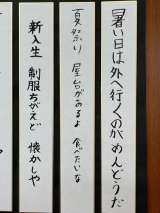 暑い日は外へ行くのがめんどうだ
夏祭り 屋台があるよ 食べたいな
新入生 制服ちがえど 懐かしや